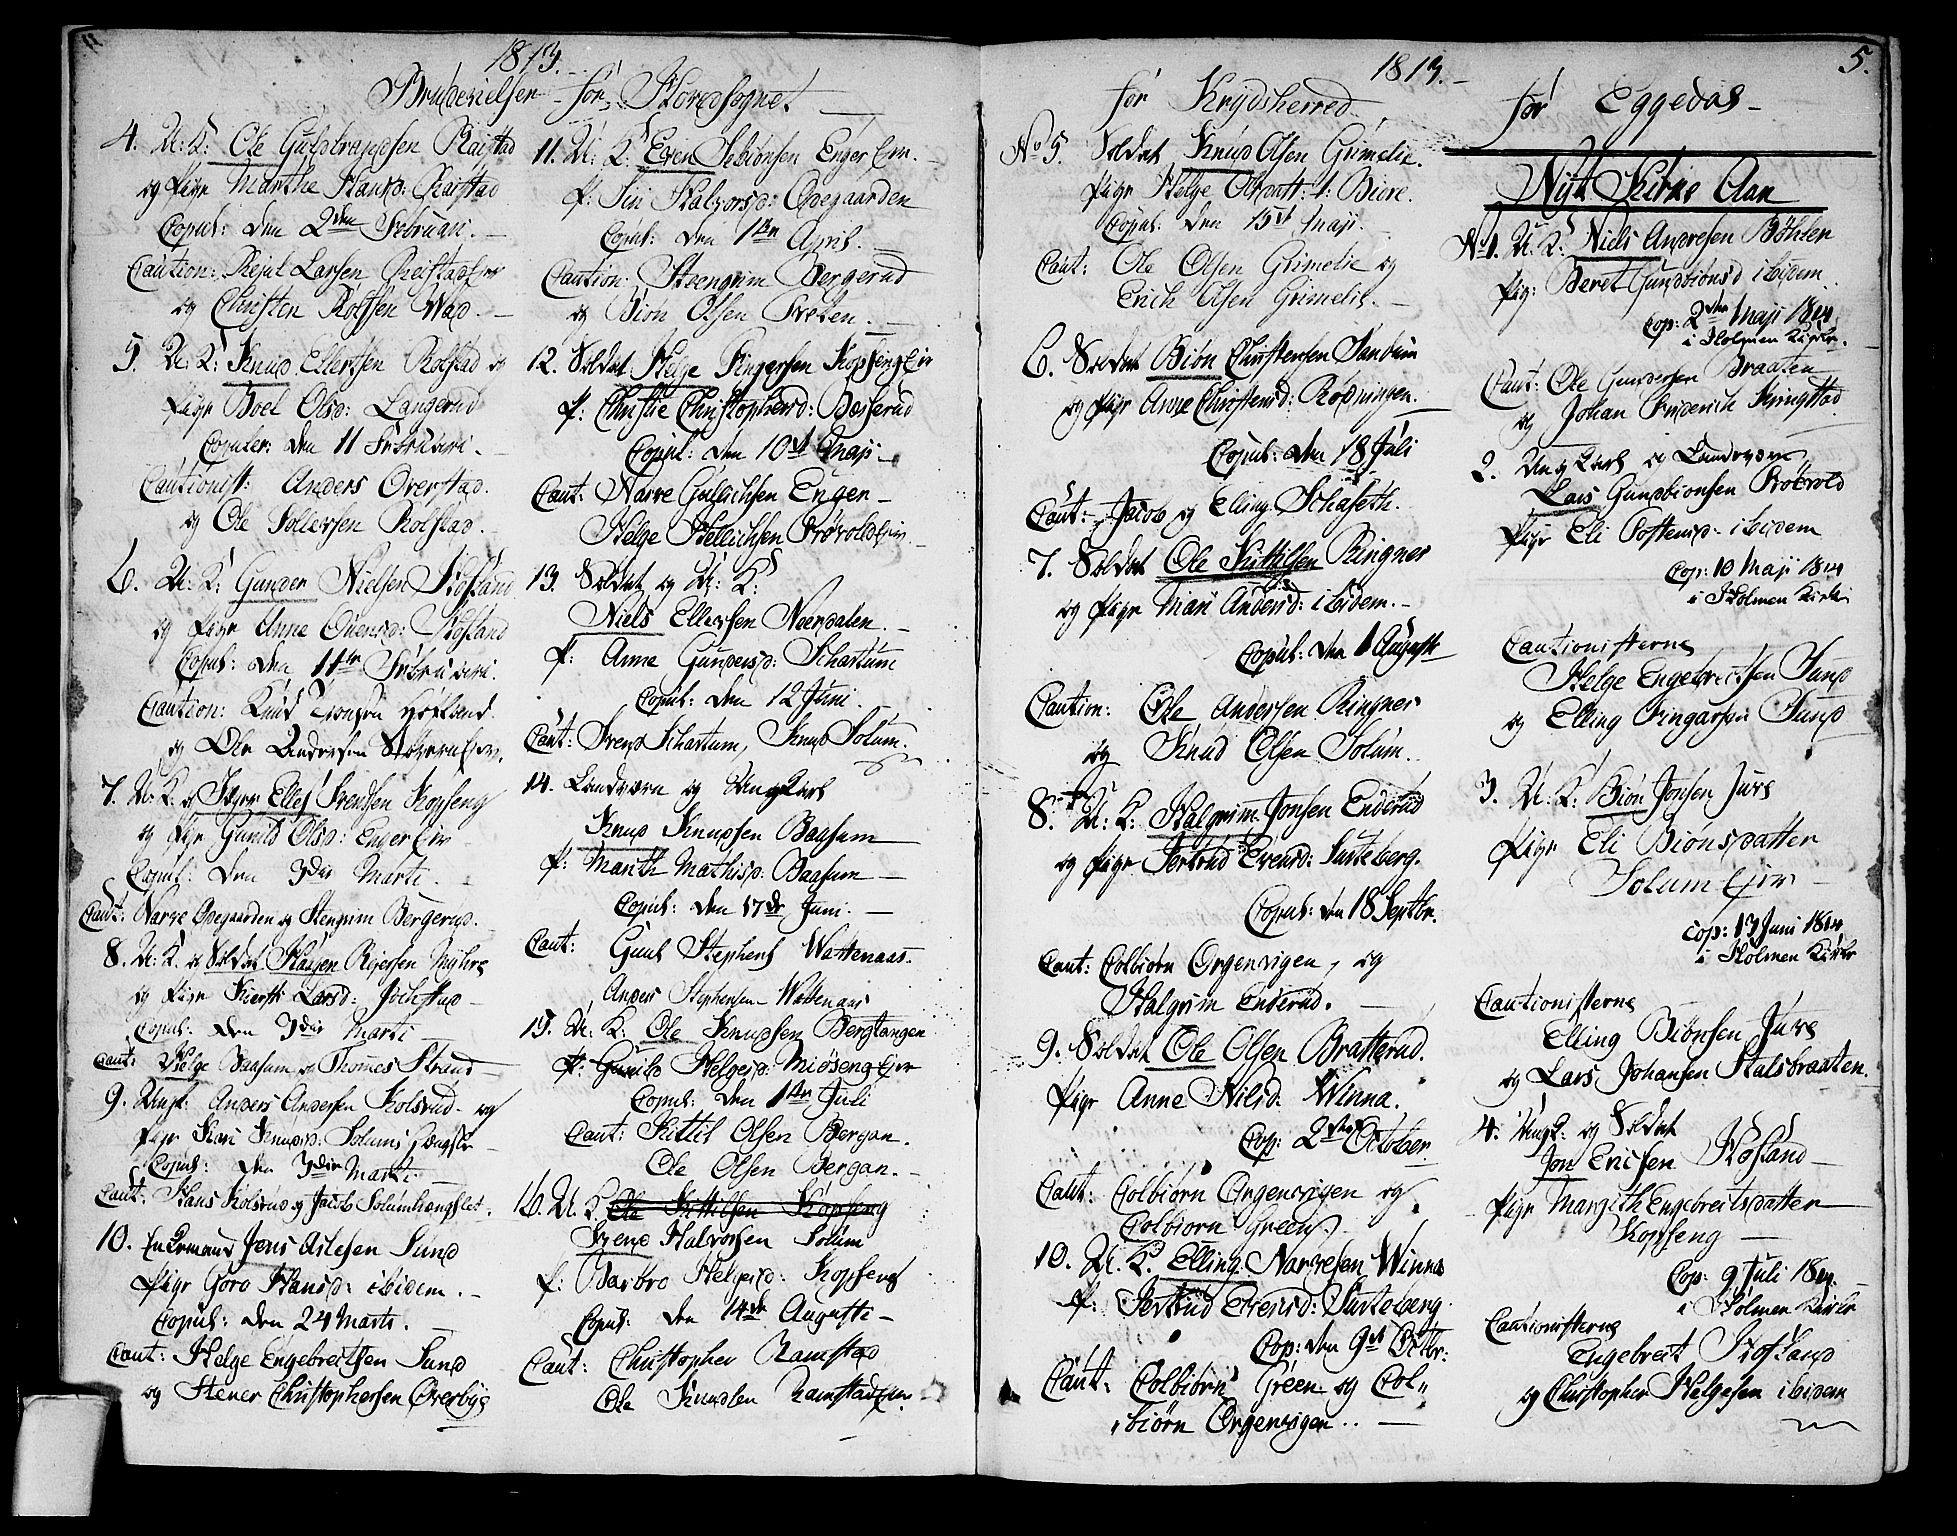 1813.
Brudevielser for Hovedsognet
4. U: K: Ole Guldbrandsen Raistad
og Pige Marthe Hansd: Raistad
Copul: den 2den Februari.
Caution: Larsen
og Christen
5. U: K: Knud Ellertsen Rolstad og
Pige Boel Olsd: Langerud
Copuler: den 11 Februari.
Cautionist: Anders Overstad.
og Ole Tollevsen Rolstad.
6. U: K: Gunder Nielsen
og Pige Anne
Copul: den 11te Februari.
Caution: Knud
og Ole Andersen
7. U: K: og Svendsen Kopseng
og Pige Gunild Olsd: Enger Eier
Copul: den 3die Marti.
Caut: Narve Ødegaarden og Stengrim Bergerud.
8. U: K. og Soldat Haagen
og Pige Kiersti Larsd:
Copul: den 3die Marti
Caut: Helge Baasum og Thomes Strand
9. Ungk: Anders Andersen Kolsrud og
Pige Kari Knudsd: Solums
Copul: den 3die Marti.
Caut: Hans Kolsrud og Jacob
10. Enkemand Jens Aslesen Sund
Pige Goro Hansd: ibidem.
Copul: den 24 Marti.
Caut: Helge Engebreitsen Sund
og Stener Christophersen Øverbye
11. U: K: Even Enger Eier.
P: Siri Halvorsd: Ødegaarden
Copul: den 1te April.
Caution: Steengrim Bergerud
og Biön Olsen
12. Soldat Helge Fingersen Kopseng Eier
P: Christie Christophersd: Bøsserud
Copul: den 10de Maji
Caut: Narve Gulichsen Engen
Helge
13. Soldat og U: K:
Niels Ellevsen Noerdalen.
P: Anne Gundersd: Schartum
Copul: den 12 Juni.
Caut: Svend Schartum, Knud Solum.
14. Landværn og Ungkarl
Knud Knudsen Baasum
P: Marith Mathisd: Baasum
Copul: den 17de Juni.
Caut: Guul Stephens Wattenaas.
Anders Stephensen Wattenaas
15. U: K: Ole Knudsen Bergtangen
P: Gunild Helgesd: Miøseng Eier
Copul: den 1te Juli
Caut: Kittil Olsen Bergan.
Ole Olsen Bergan.
16. U: K: Ole Kittilsen Kopseng
Svend Halvorsen Solum
P: Barbro Helgesd: Kopseng
Copul: den 14de Augusti
Caut: Christopher Ramstad
Ole Knudsen Ramstadeier.
1813.
for Krydsherred
No 5. Soldat Knud Olsen Grimelie.
Pige Helge Olsdatt: Biøre.
Copul: den 15de Maji.
Caut: Ole Olsen Grimelie og
Erich Olsen Grimelie.
6. Soldat Biön Christensen Sandum
og Pige Anne Christensd: Rodningen.
Copul: den 18 Juli
Caut: Jacob og Elling Schafseth.
7. Soldat Ole Kittilsen Ringnes
og Pige Mari Andersd: ibidem.
Copul: den 1 Augusti
Caution: Ole Andersen Ringnes
og Knud Olsen Solum.
8. U: K: Halgrim Jonsen Enderud
og Pige Jertrud Evensd: Surteberg.
Copul: den 18 Septbr.
Caut: Colbiörn Ørgenvigen, og
Halgrim Enderud.
9. Soldat Ole Olsen Bratterud.
Pige Anne Nilsd: Winna.
Cop: 2den October
Caut: Colbiörn Ørgenvigen og
Colbiörn Green.
10. U: K: Elling Narvesen Winna
P: Jertrud Evensd: Surteberg.
Cop: den 9de Octbr:
Caut: Colbiörn Green og Col„
„biörn Ørgenvigen.
5.
for Eggedal
Nyt Kirke Aar
No 1. U: K: Niels Andresen Bøhlen
Pig: Beret Gundbiönsd ibidem.
Cop: 2den Maji 1814
i Holmen Kirke.
Caut: Ole Gundersen Braaten
og Johan Friderich Kringstad
2. Ungkarl og Landværn,
Lars Gundbionsen Frøvold
Pige Eli Costensd: ibidem
Cop: 10 Maji 1814
i Holmen Kirke
Cautionisterne
Helge Engebreitsen Sund
og Elling Fingarsen Sund
3. U: K: Biön Jonsen Juvs
Pige Eli Biönsdatter
Solum Eier
Cop: 17 Juni 1814
i Holmen Kirke
Cautionisterne
Elling Biönsen Juvs
og Lars Johansen Halsbraaten.
4. Ungk: og Soldat
Jon Ericsen Hofland
Pige Margith Engebreitsdatter
Kopseng
Cop: 9 Juli 1814.
i Holmen Kirke
Cautionisterne
Engebret Hofland
og Christopher Helgesen ibidem